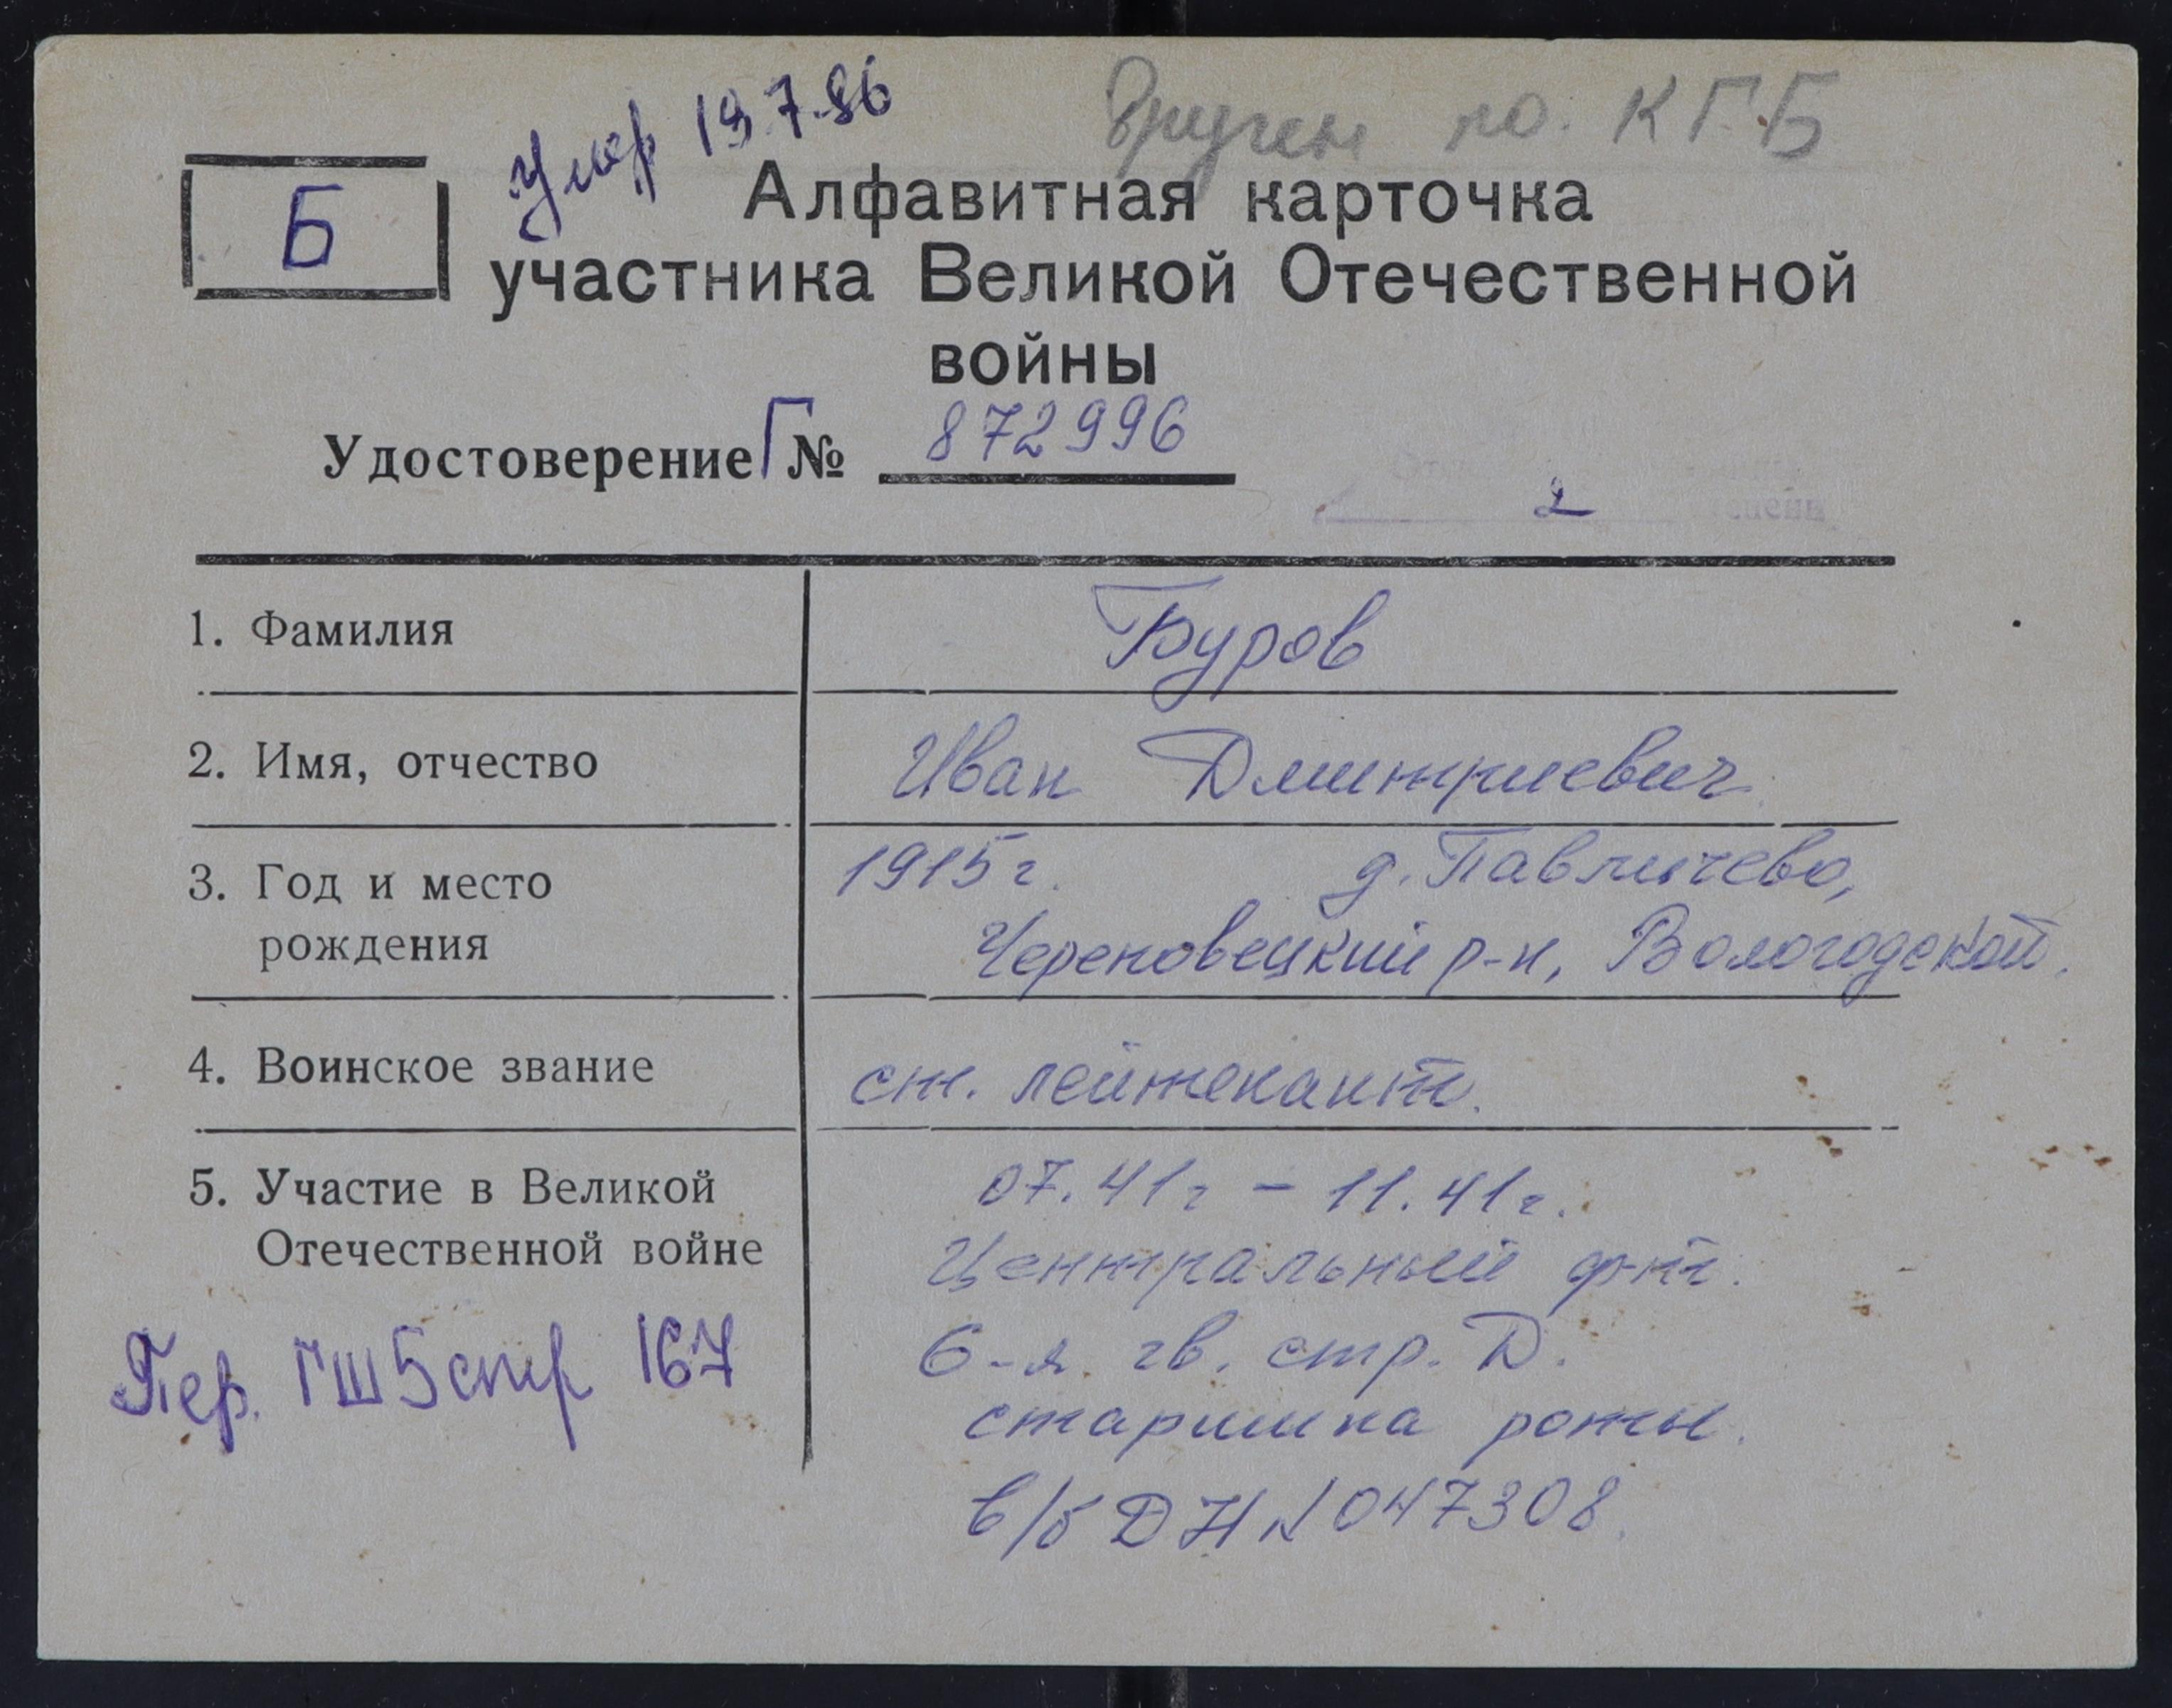 Умер 19.7.86
Вручен по. КГБ
Б
Алфавитная карточка
участника Великой Отечественной
войны
Удостоверение Г № 872996
2 степени
1. Фамилия Буров
2. Имя, отчество Иван Дмитриевич
3. Год и место 1915 г. д. Павличево,
рождения Череповецкий р-н, Вологодской.
4. Воинское звание ст. лейтенант.
5. Участие в Великой 07.41г – 11.41г.
Отечественной войне Центральный ф-нт.
6-я гв. стр. Д.
старшина роты.
Пер. ГШ 5 стр 167
в/б ДН № 047308.